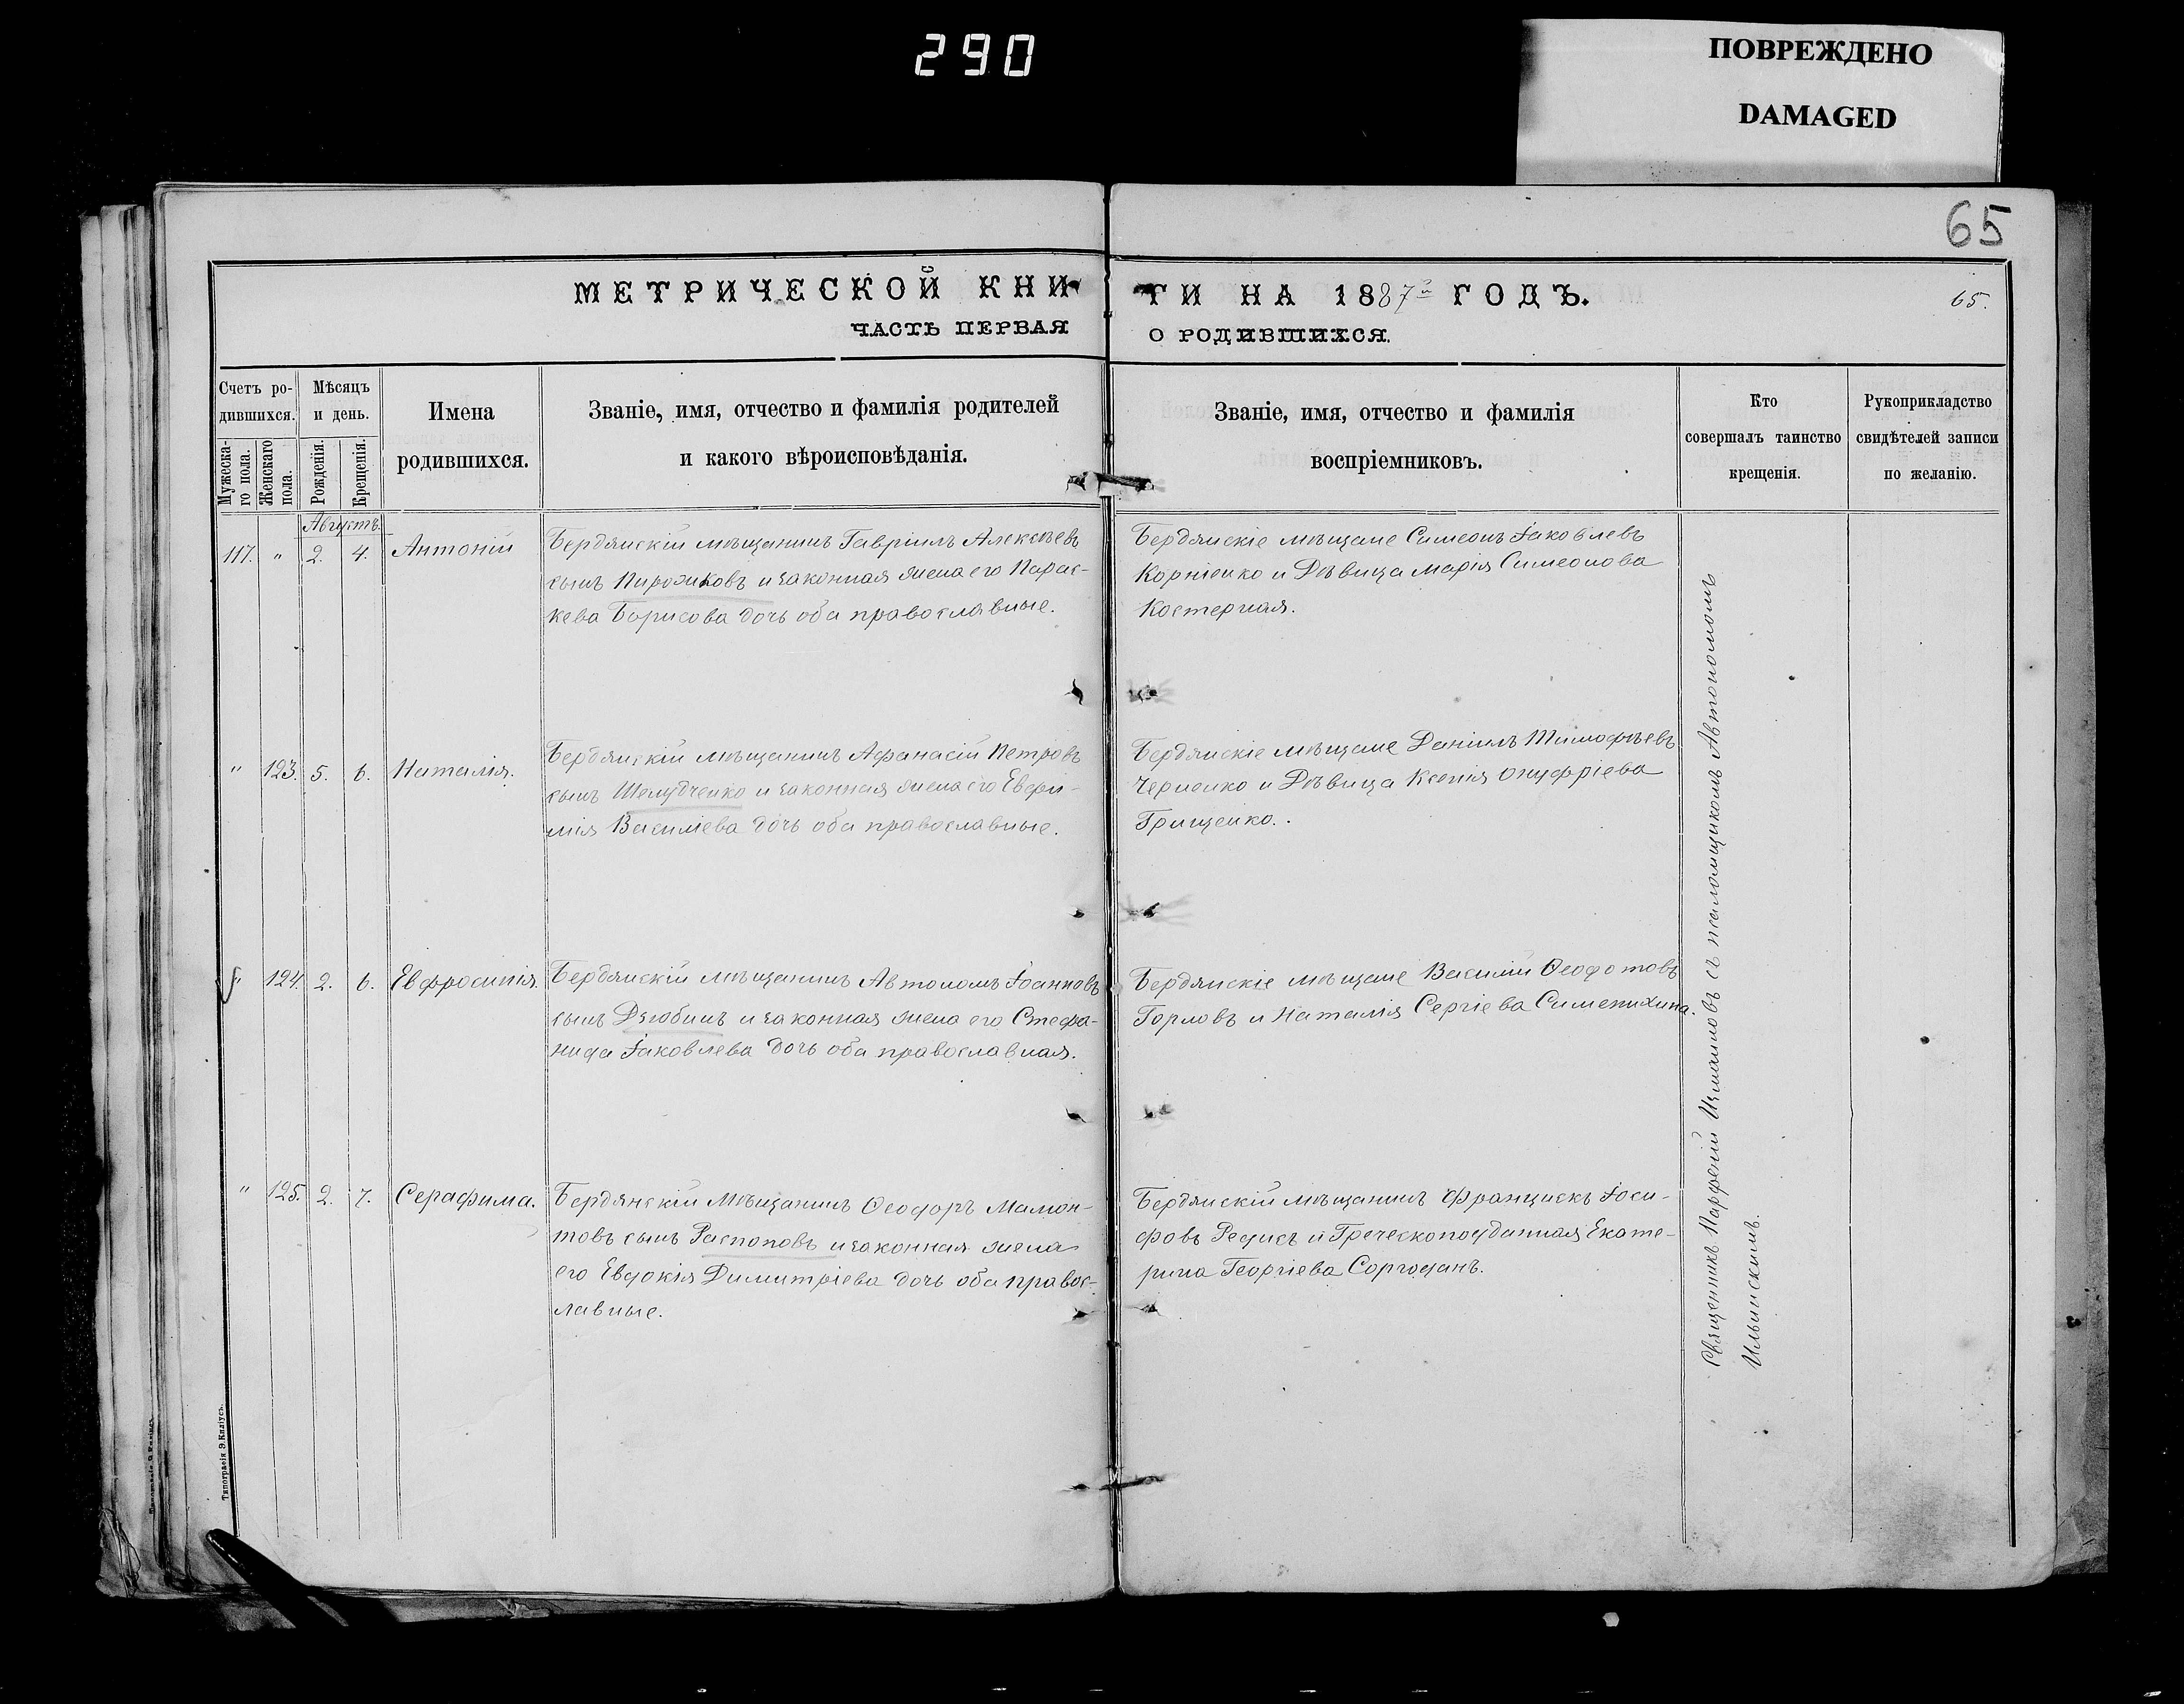 290
ПОВРЕЖДЕНО
DAMAGED
65
МЕТРИЧЕСКОЙ КНИ
ГИ НА 1887й ГОДЪ.
65.
ЧАСТЬ ПЕРВАЯ
О РОДИВШИХСЯ.
Счетъ ро-
дившихся.
Мужеска-
го пола.
Женскаго
пола.
Мѣсяцъ
и день.
Рожденія.
Крещенія.
Имена
родившихся.
Званіе, имя, отчество и фамилія родителей
и какого вѣроисповѣданія.
Званіе, имя, отчество и фамилія
воспріемниковъ.
Кто
совершалъ таинство
крещенія.
Рукоприкладство
свидѣтелей записи
по желанію.
Августъ.
117. " 2. 4. Антоній
Бердянскій мѣщанинъ Гавріилъ Алексѣевъ
сынъ Пирожковъ и законная жена его Парас-
кева Борисова дочь оба православные.
Бердянскіе мѣщане Симеонъ Іаковлевъ
Корніенко и Дѣвица Марія Симеонова
Костерная.
" 123. 5. 6. Наталія.
Бердянскій мѣщанинъ Афанасій Петровъ
сынъ Шелудченко и законная жена его Евфи-
мія Василіева дочь оба православные.
Бердянскіе мѣщане Даніилъ Тимофѣевъ
Черненко и Дѣвица Ксенія Онуфріева
Грищенко.
" 124. 2. 6. Евфросинія.
Бердянскій мѣщанинъ Автономъ Іоанновъ
сынъ Дзюбинъ и законная жена его Стефа-
нида Іаковлева дочь оба православная.
Бердянскіе мѣщане Василій Ѳеодотовъ
Горловъ и Наталія Сергіева Сименихина.
" 125. 2. 7. Серафима.
Бердянскій Мѣщанинъ Ѳеодоръ Мамон-
товъ сынъ Распоповъ и законная жена
его Евдокія Димитріева дочь оба правос-
лавные.
Бердянскій мѣщанинъ Францискъ Іоси-
фовъ и Греческоподданная Екате-
рина Георгіева
Священникъ Парфеній Измаиловъ съ псаломщикомъ Автономомъ
Ильинскимъ.
Типографія Э. Килліусъ.